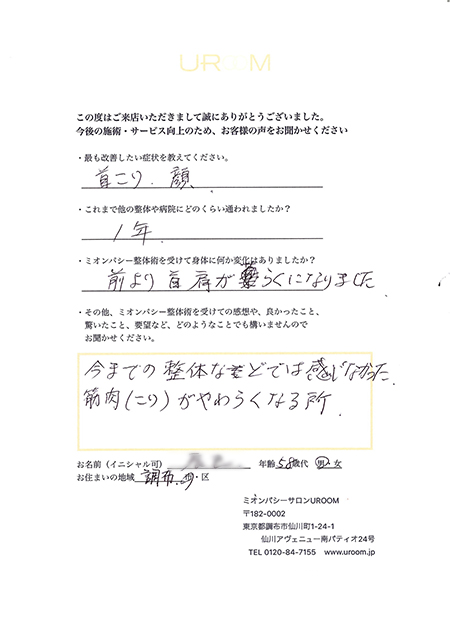 UROOM
この度はご来店いただきまして誠にありがとうございました。
今後の施術・サービス向上のため、お客様の声をお聞かせください
・最も改善したい症状を教えてください。
首こり、顔、
・これまで他の整体や病院にどのくらい通われましたか？
1年
・ミオンパシー整体術を受けて身体に何か変化はありましたか？
前より首肩がらくになりました
・その他、ミオンパシー整体術を受けての感想や、良かったこと、
驚いたこと、要望など、どのようなことでも構いませんので
お聞かせください。
今までの整体などでは感じなかった、
筋肉(こり)がやわらくなる所.
お名前（イニシャル可） 年齢58歳代 男・女
お住まいの地域 調布 市・区
ミオンパシーサロンUROOM
〒182-0002
東京都調布市仙川町1-24-1
仙川アヴェニュー南パティオ24号
TEL 0120-84-7155 www.uroom.jp